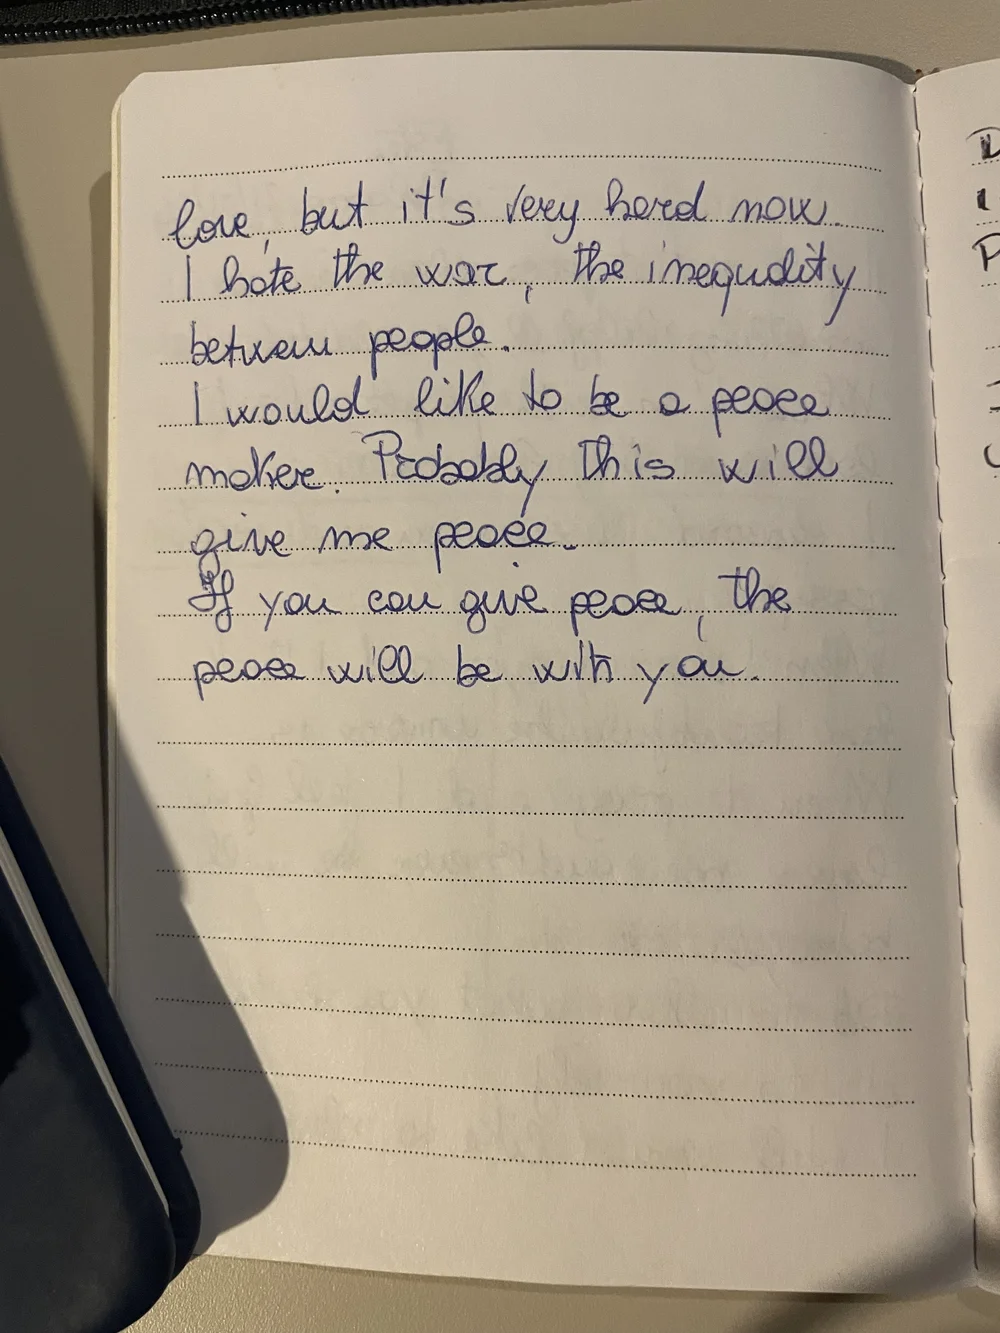 love, but it's very hard now.
I hate the war, the inequality
between people.
I would like to be a peace
maker. Probably this will
give me peace.
If you can give peace, the
peace will be with you.